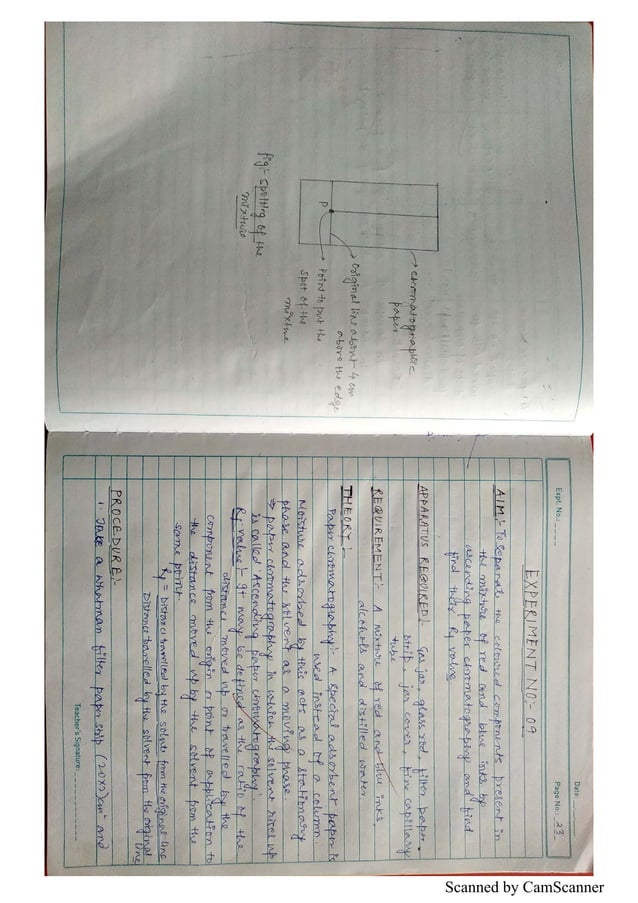 chromatographic
paper
Original line about 4 cm
above the edge
Point to put the
spot of the
mixture
P
fig:- spotting of the
mixture
Expt. No.:
Date:
Page No.: 23
EXPERIMENT NO:- 09
AIM:- To separate the coloured components present in
the mixture of red and blue inks by
ascending paper chromatography and find
find their Rf value
APPARATUS REQUIRED:- Gas jar, glass rod filter paper
strip jar cover, fine capillary
tube
REQUIREMENT:- A mixture of red and blue inks,
alcohols and distilled water.
THEORY:-
Paper chromatography:- A special adsorbent paper is
used instead of a column.
Moisture adsorbed by this acts as a stationary
phase and the solvent as a moving phase.
⇒ paper chromatography in which the solvent rises up
is called Ascending paper chromatography.
Rf value:- It may be defined as the ratio of the
distance moved up or travelled by the
component from the origin or point of application to
the distance moved up by the solvent from the
same point.
Rf = Distance travelled by the solute from the original line
Distance travelled by the solvent from the original line
PROCEDURE:-
1. Take a whatman filter paper strip (20x2)cm² and
Teacher's Signature:
Scanned by CamScanner